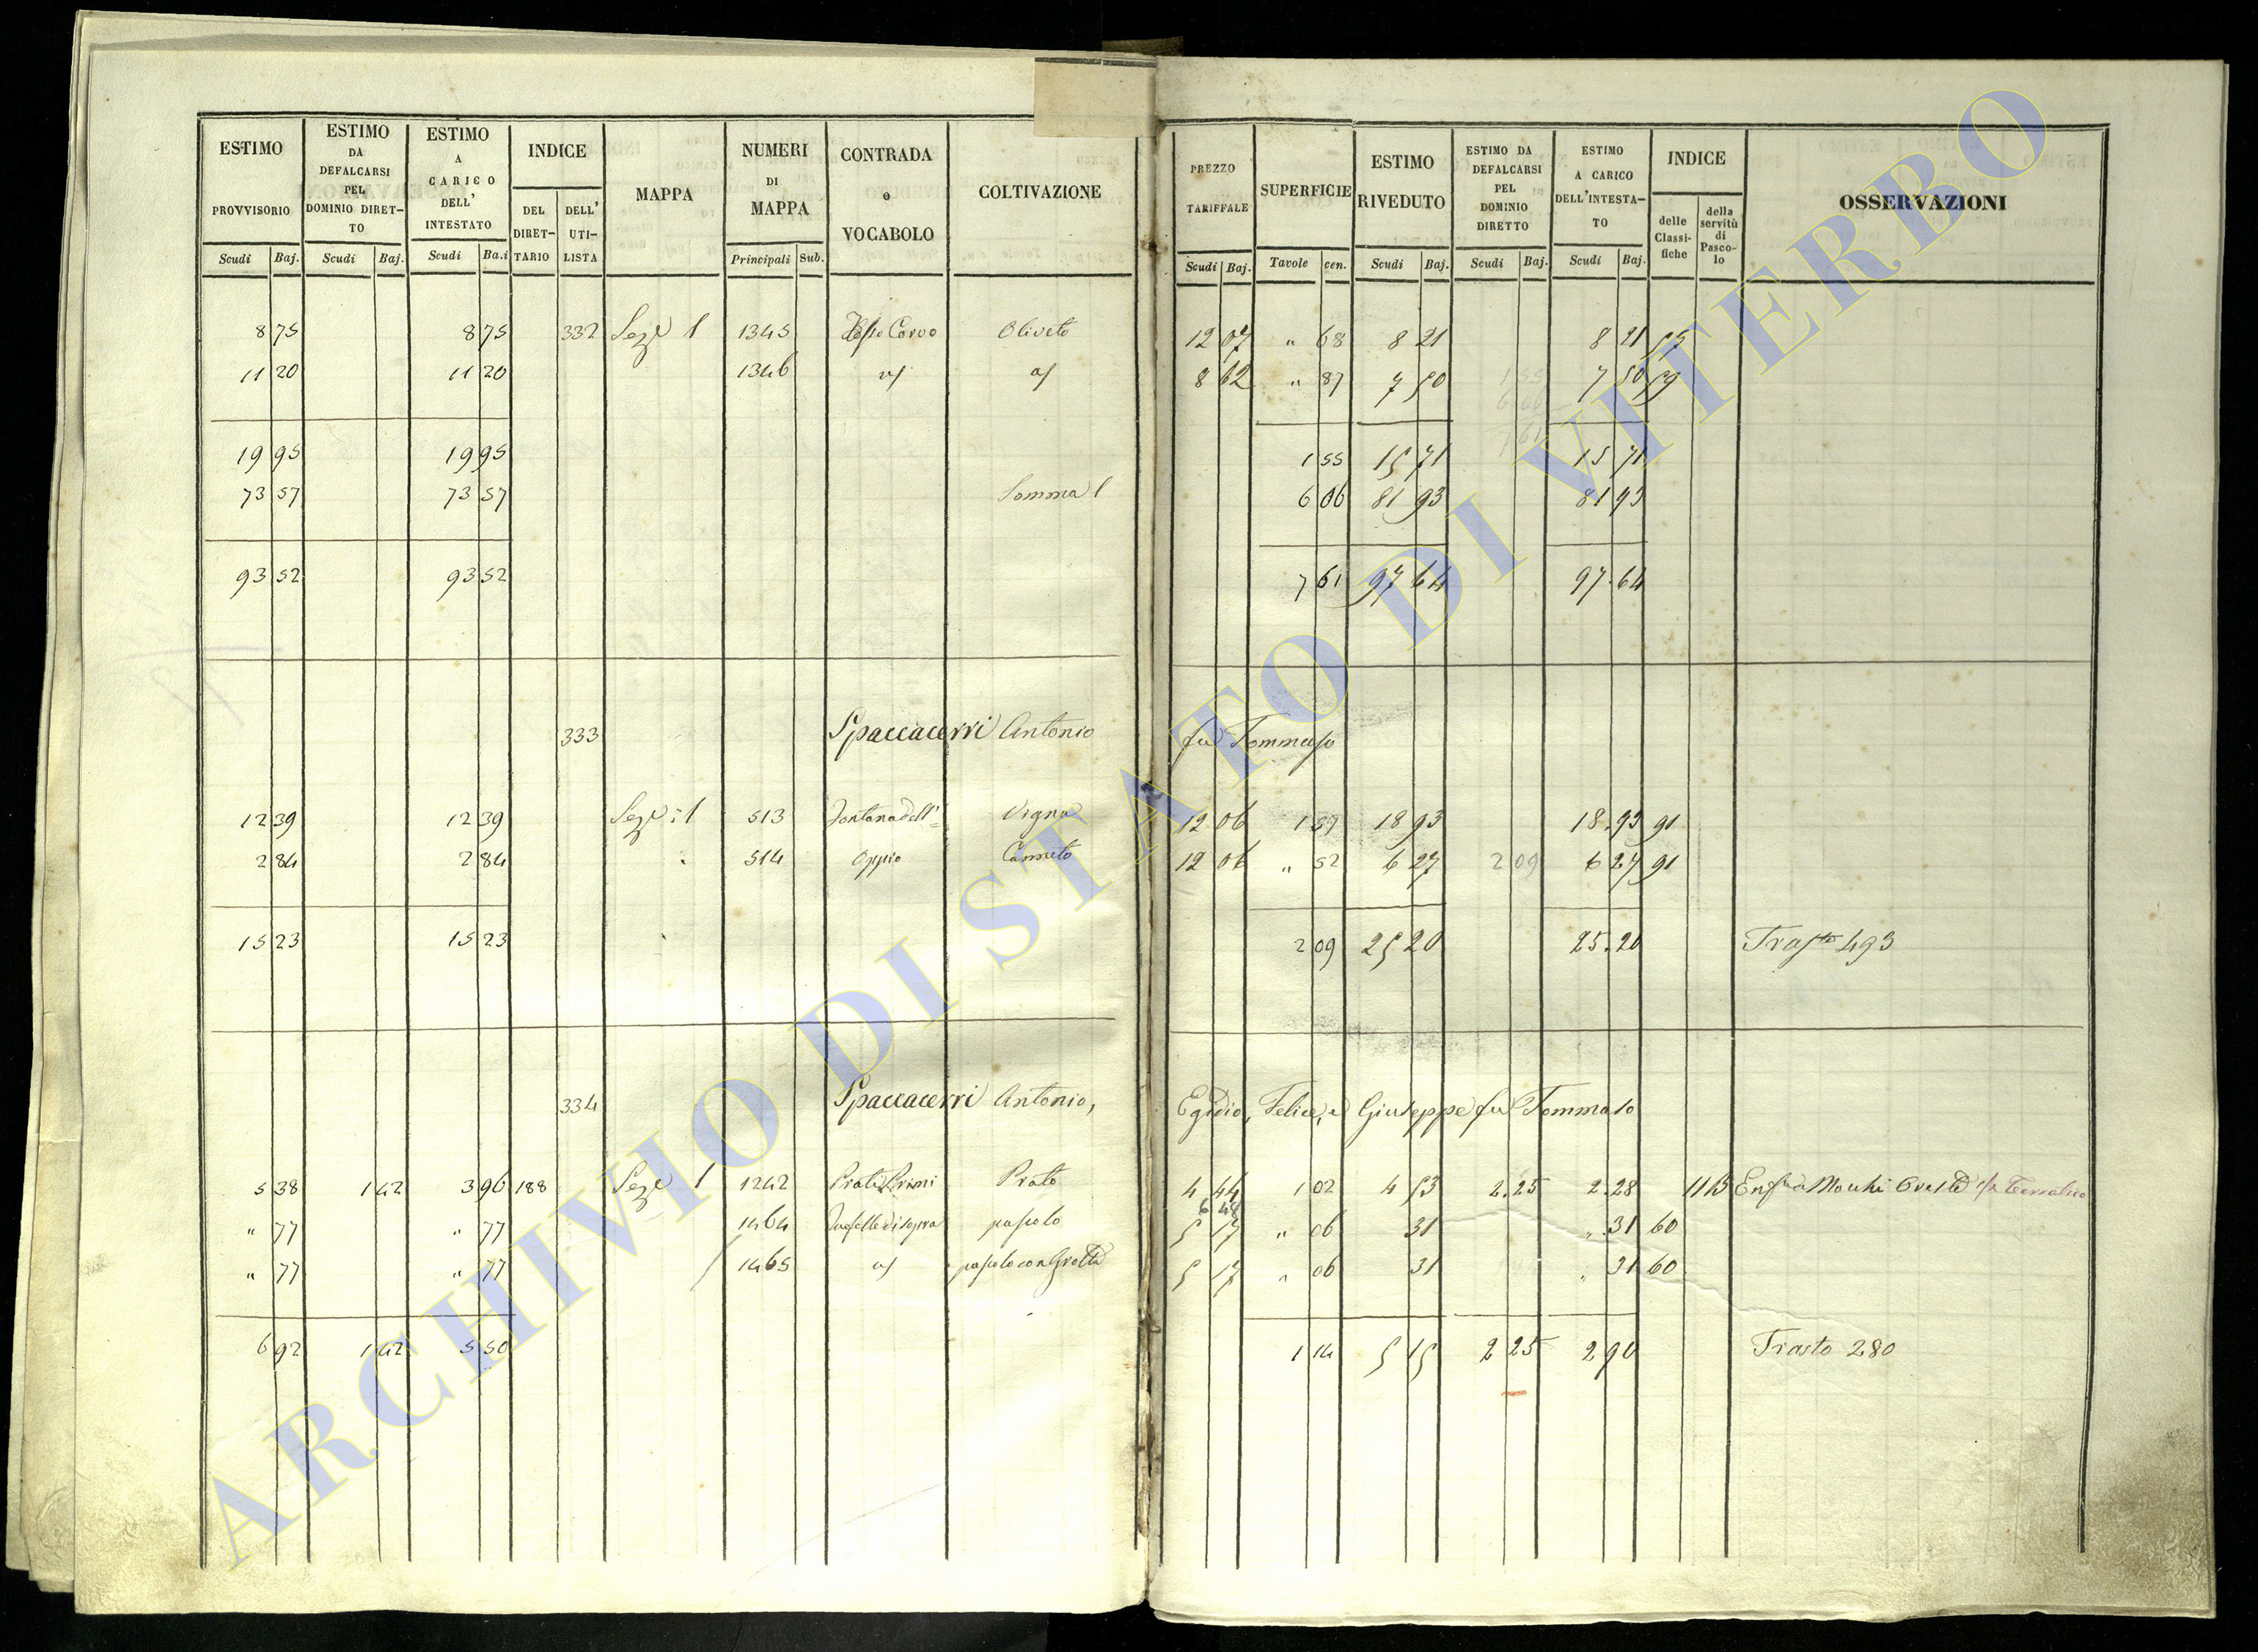 ESTIMO PROVVISORIO Scudi Baj.
ESTIMO DA DEFALCARSI PEL DOMINIO DIRETTO Scudi Baj.
ESTIMO A CARICO DELL' INTESTATO Scudi Ba.i
INDICE DEL DIRETTARIO DELL' UTILISTA
MAPPA
NUMERI DI MAPPA Principali Sub.
CONTRADA o VOCABOLO
COLTIVAZIONE
PREZZO TARIFFALE Scudi Baj.
SUPERFICIE Tavole cen.
ESTIMO RIVEDUTO Scudi Baj.
ESTIMO DA DEFALCARSI PEL DOMINIO DIRETTO Scudi Baj.
ESTIMO A CARICO DELL'INTESTATO Scudi Baj.
INDICE delle Classifiche della servitù di Pascolo
OSSERVAZIONI
8 75 8 75 332 Sezе 1 1345 Corvo Oliveto 12 07 " 68 8 21 8 21
11 20 11 20 1346 8 62 " 87 7 50 7 50 59
19 95 19 95 1 55 15 71 15 71
73 57 73 57 Somma 1 6 06 81 93 81 93
93 52 93 52 7 61 97 64 97.64
333 Spaccacerri Antonio fu Tommaso
12 39 12 39 Seze: 1 513 Fontana dell' Vigna 12 06 1 57 18 93 18.93 91
2 84 2 84 514 Oppio Canneto 12 06 " 52 6 27 2 09 6 27 91
15 23 15 23 2 09 25 20 25.20 Trasto 493
334 Spaccacerri Antonio, Egidio, Felice, e Giuseppe fu Tommaso
5 38 1 42 3 96 188 Seze 1 1242 Prati Primi Prato 4 44 1 02 4 53 2.25 2.28 11 13
" 77 " 77 1464 di sopra pascolo 5 17 " 06 31 " 31 60
" 77 " 77 1465 pascolo con Grotta 5 17 " 06 31 " 31 60
6 92 1 42 5 50 1 14 5 15 2 25 2 90 Trasto 280
ARCHIVIO DI STATO DI VITERBO